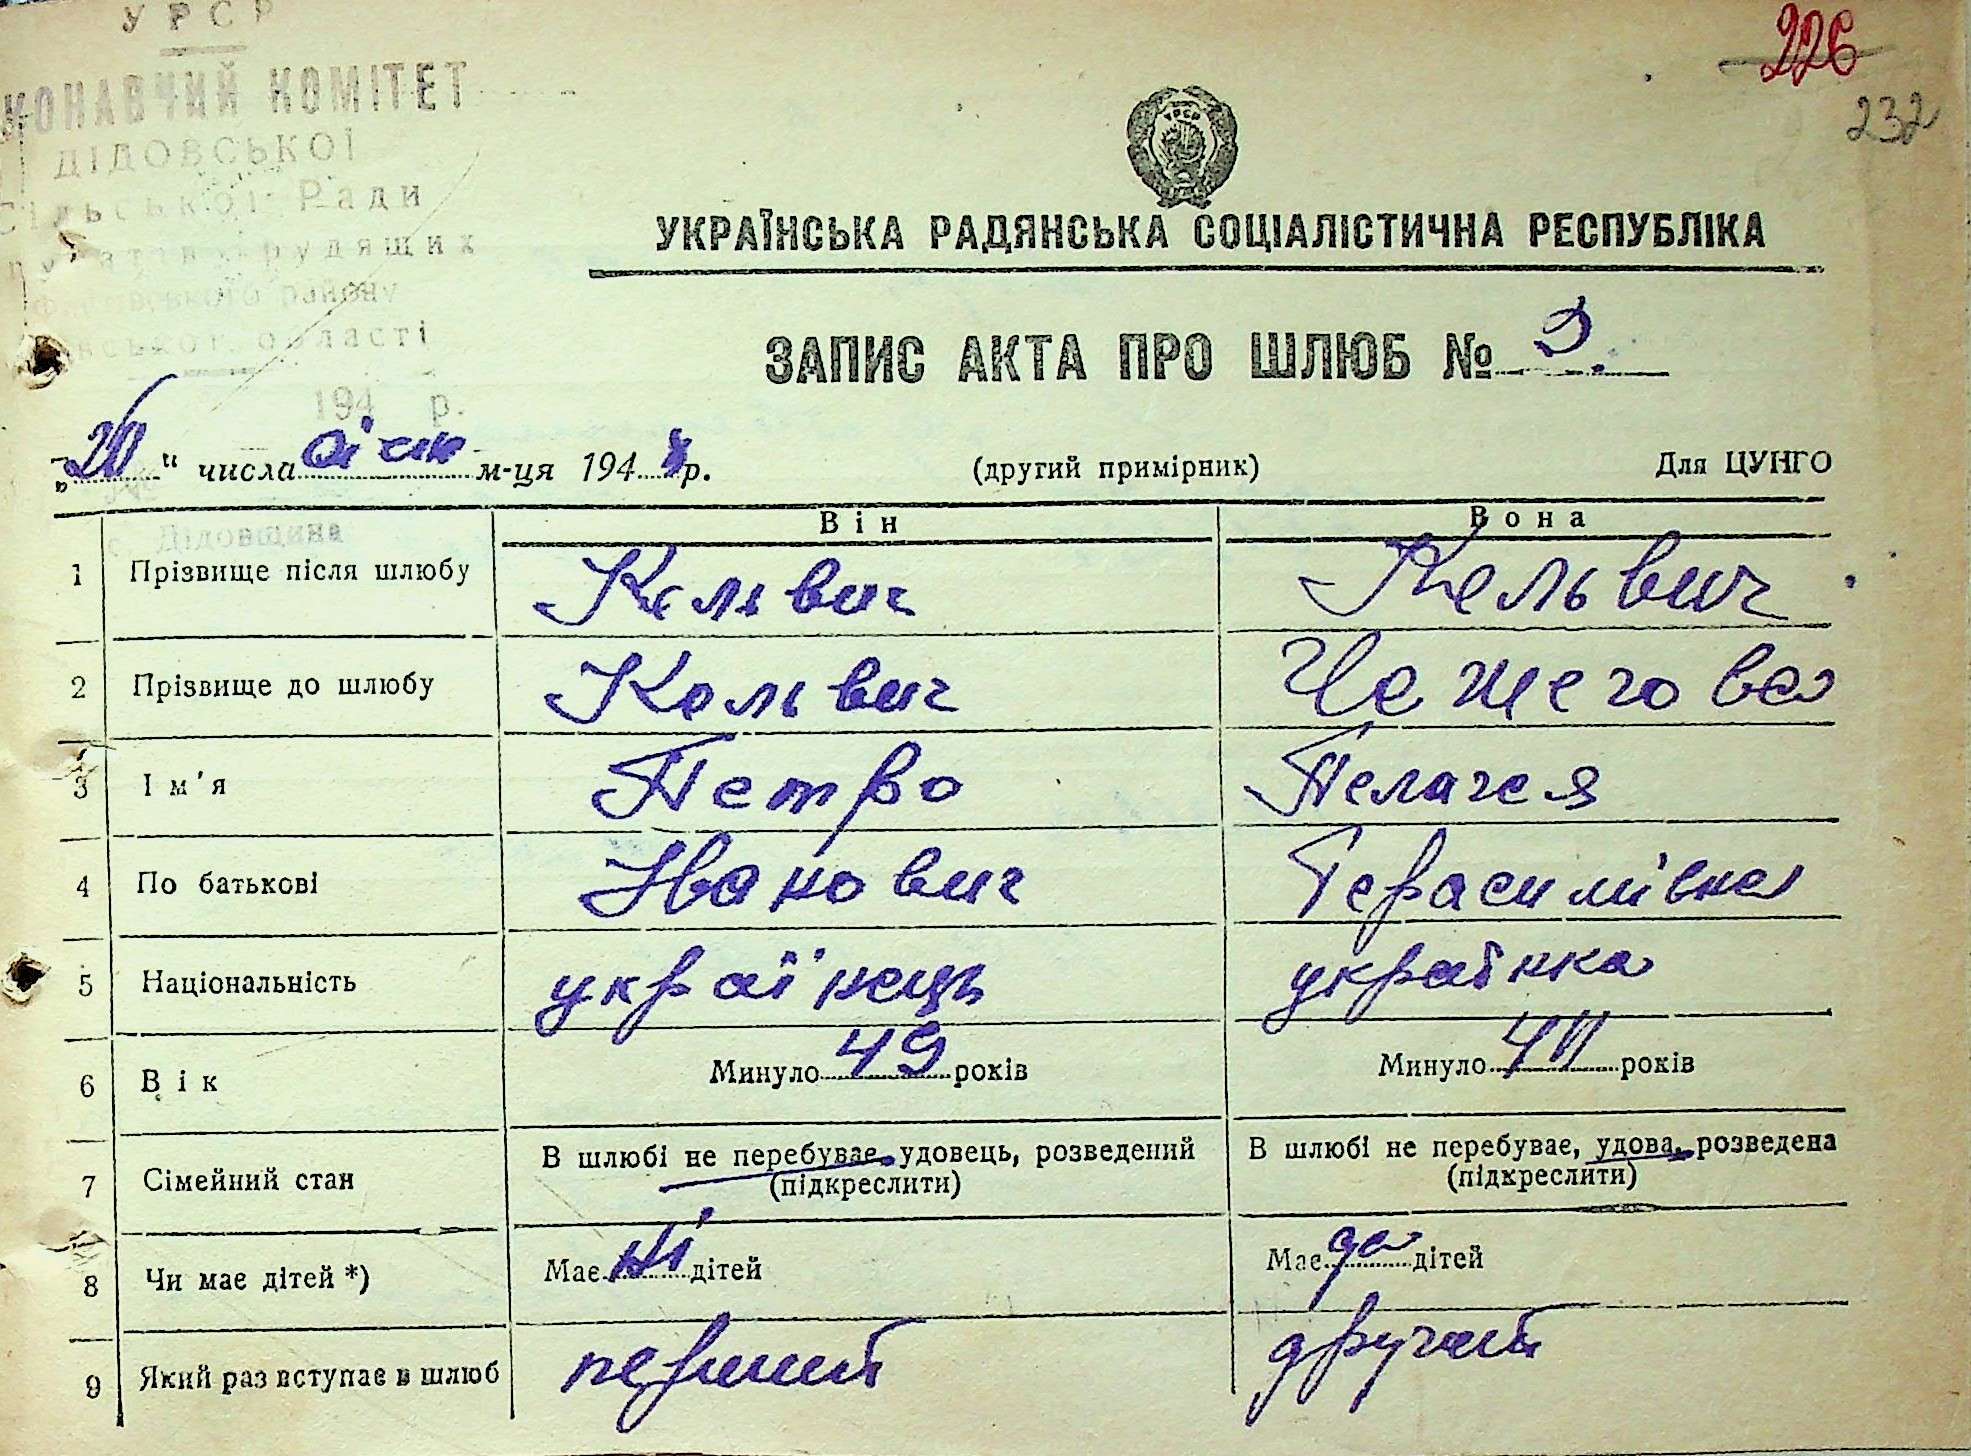 УРСР
226
КОНАВЧИЙ КОМІТЕТ
232
ДІДОВСЬКОЇ
Сільської Ради
трудящих
району
області
УКРАЇНСЬКА РАДЯНСЬКА СОЦІАЛІСТИЧНА РЕСПУБЛІКА
ЗАПИС АКТА ПРО ШЛЮБ №
194 р.
„20“ числа січн м-ця 194 р. (другий примірник) Для ЦУНГО
с. Дідовщина
Він Вона
1 Прізвище після шлюбу Кельвич Кельвич
2 Прізвище до шлюбу Кельвич
3 Ім'я Петро Пелагея
4 По батькові Іванович Герасимівна
5 Національність українець українка
6 Вік Минуло 49 років Минуло років
7 Сімейний стан В шлюбі не перебуває, удовець, розведений (підкреслити) В шлюбі не перебуває, удова, розведена (підкреслити)
8 Чи має дітей *) Має ні дітей Має да дітей
9 Який раз вступає в шлюб перший другий